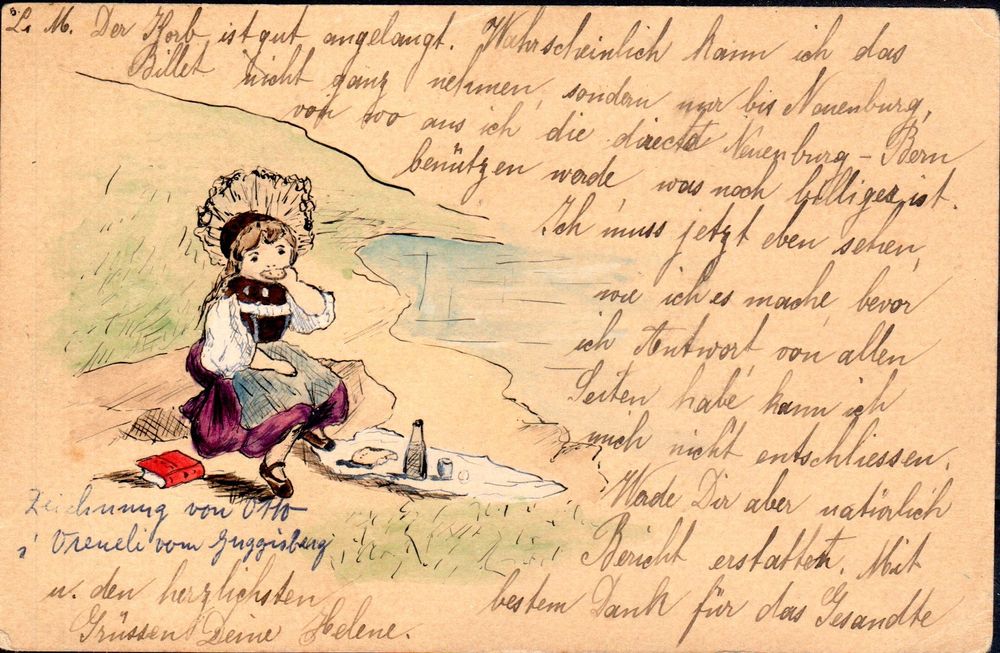 L. M. Der Korb ist gut angelangt. Wahrscheinlich kann ich das
Billet nicht ganz nehmen, sondern nur bis Neuenburg,
von wo aus ich die directe Neuenburg-Bern
benützen werde, was noch billiger ist.
Ich muss jetzt eben sehen,
wie ich es mache, bevor
ich Antwort von allen
Seiten habe kann ich
mich nicht entschliessen.
Werde Dir aber natürlich
Bericht erstatten. Mit
bestem Dank für das Gesandte
u. den herzlichsten
Grüssen Deine Helene.
Zeichnung von Otto
s' Vreneli vom Guggisberg